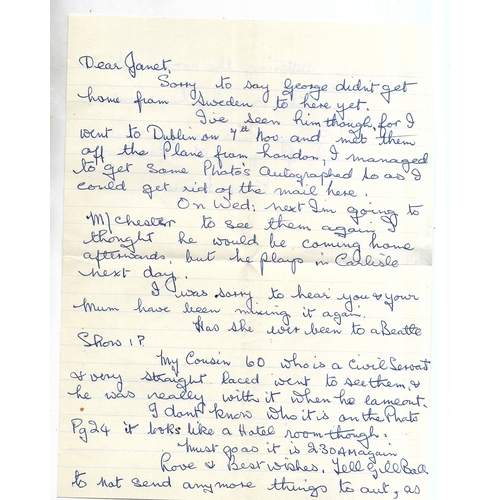 Dear Janet,
Sorry to say George didnt get
home from Sweden to here yet.
I've seen him though, for I
went to Dublin on 7th Nov and met them
off the Plane from London, I managed
to get some Photo's Autographed so as I
could get rid of the mail here.
On Wed: next I'm going to
M/chester to see them again, I
thought he would be coming home
afterwards, but he plays in Carlisle
next day.
I was sorry to hear you & your
Mum have been mixing it again.
Has she ever been to a Beatle
Show !?
My Cousin 60 who is a Civil Servant
& very straight laced went to see them, &
he was really with it when he came out.
I dont know who it is on the Photo
Pg 24 it looks like a Hotel room though.
Must go as it is 2.30 AM again
Love & Best wishes. Tell Gill
to not send anymore things to aut, as